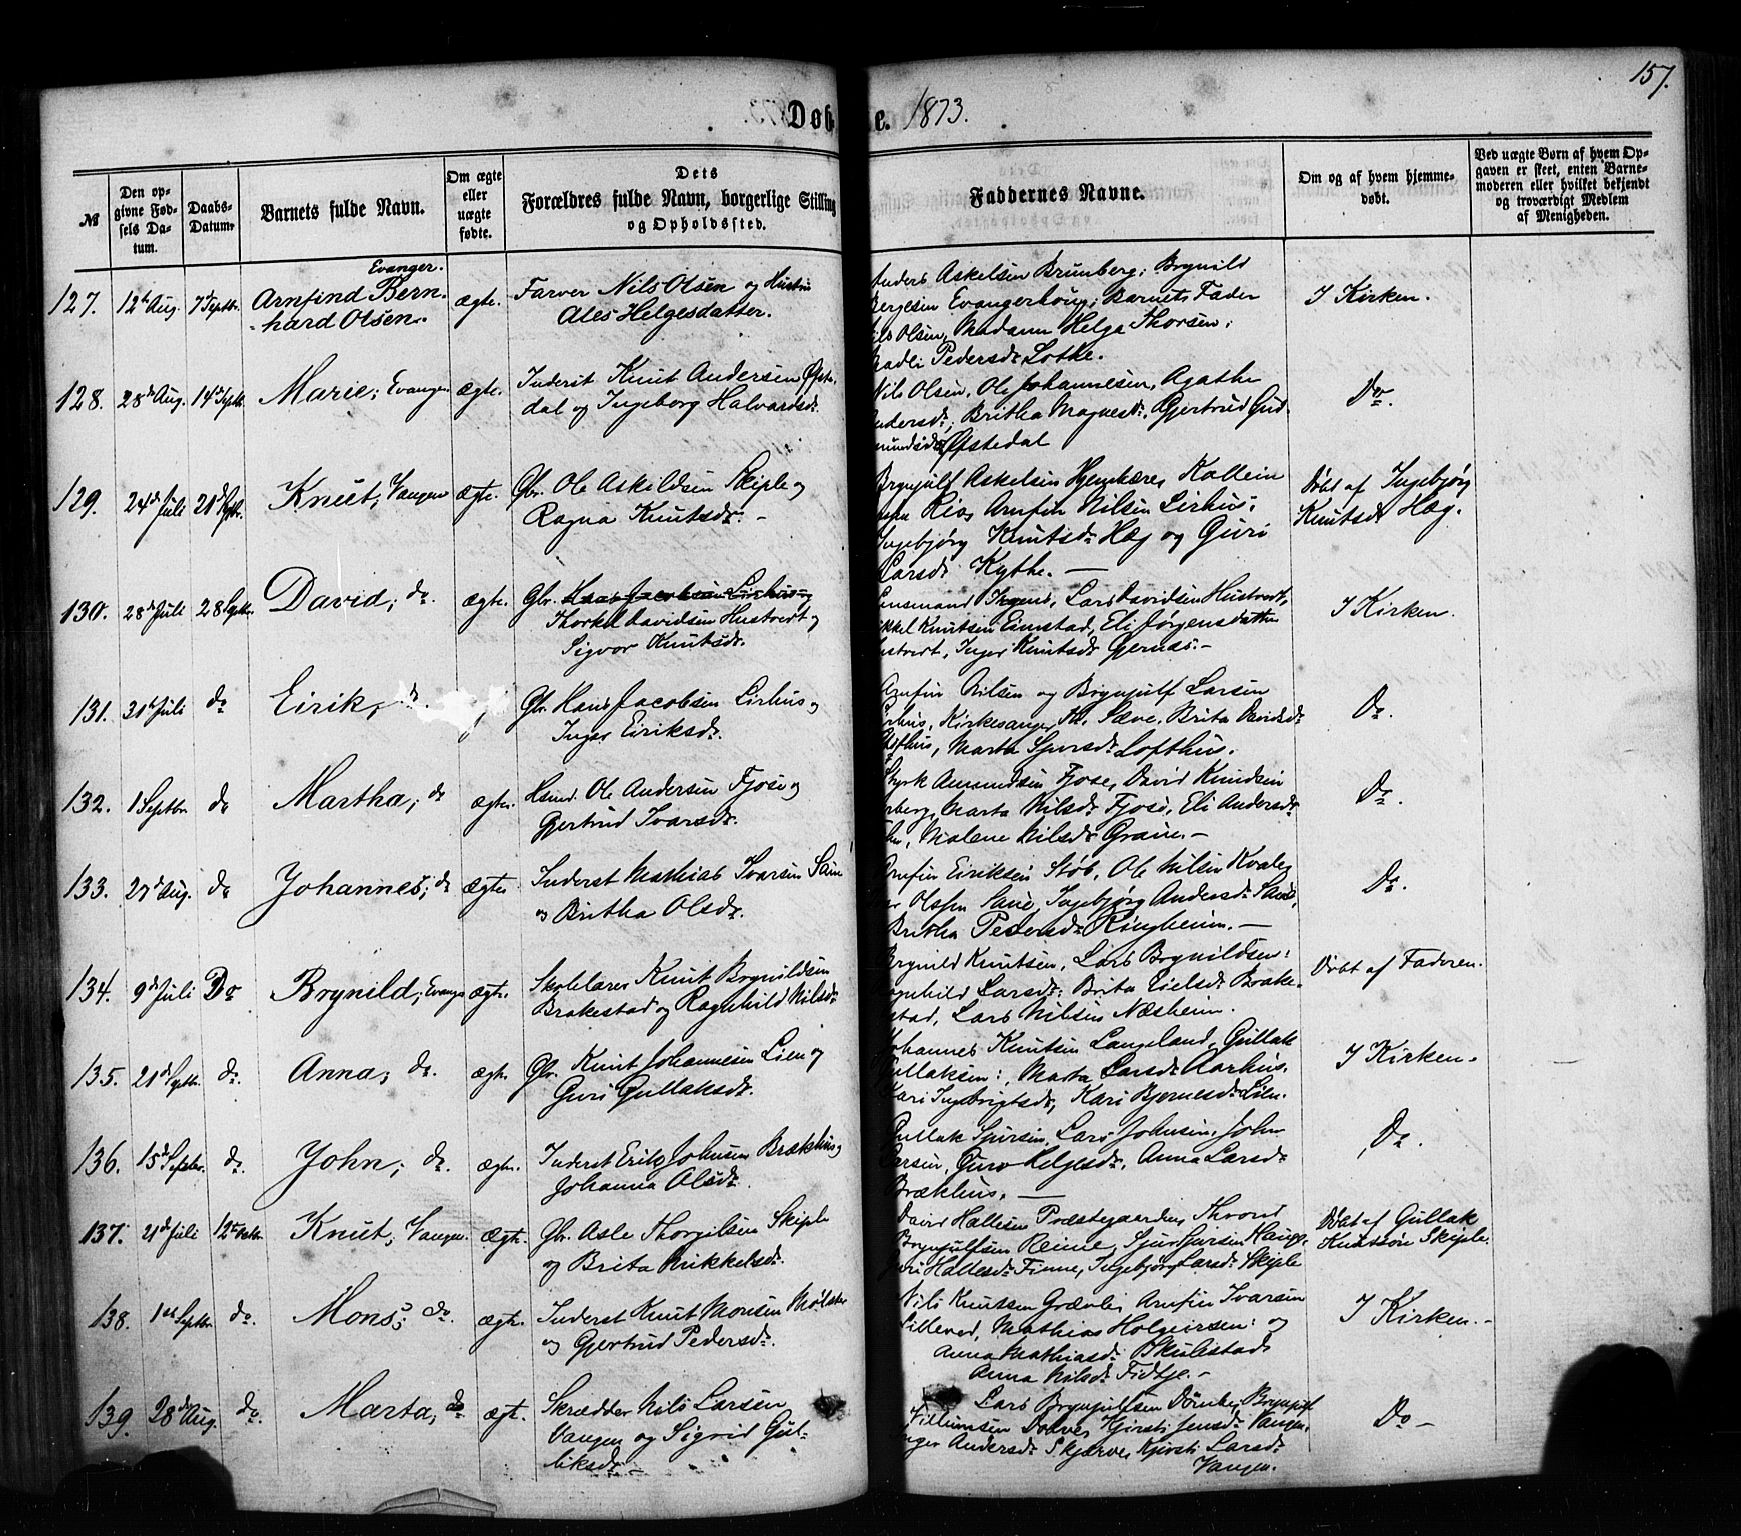 157.
Døb e. 1873.
№
Den opgivne Fødsels Datum.
Daabs-Datum.
Barnets fulde Navn.
Om ægte eller uægte fødte.
Dets Forældres fulde Navn, borgerlige Stilling og Opholdssted.
Faddernes Navne.
Om og af hvem hjemmedøbt.
Ved uægte Børn af hvem Opgaven er skeet, enten Barnemoderen eller hvilket bekjendt og troværdigt Medlem af Menigheden.
Evanger.
127. 12te Aug. 7de Septbr. Arnfind Bern-
hard Olsen. ægte.
Farver Nils Olsen og Hustru
Ales Helgesdatter.
Anders Askelsen Brunberg; Brynild
Bergesen Evangerhoug; Barnets Fader
Nils Olsen, Madam Helga Thorsen;
Pedersdr Lothe.
I Kirken.
128. 28de Aug. 14de Septb. Marie; Evanger ægte.
Inderst Knut Andersen Øfste-
dal og Ingeborg Halvardsdr.
Nils Olsen, Ole Johannesen, Agathe
Andersdr; Britha Magnesdr, Gjertrud Gud-
mundsdr Øfstedal
Do.
129. 24de Juli 21de Septbr. Knut; Vangen ægte.
Gbr. Ole Askildsen Skiple og
Ragna Knutsdr. -
Brynjulf Askelsen Hjemkære, Kollein
Rios Arnfin Nilsen Lirhus;
Ingebjørg Knutsdr Hæg og Guri
Larsdr Kythe. —
Døbt af Ingebjørg
Knutsdr Hæg.
130. 28de Juli 28 Septbr. David; do. ægte.
Gbr. Hans Jacobsen Lirhus og
Thorkel Davidsen Hustvedt og
Sigvor Knutsdr.
Lensmand Irgens, Lars Davidsen Hustvedt,
Mikkel Knutsen Eimstad, Eli Jørgensdatter
Hustvedt, Inger Knutsdr Gjernæs. -
I Kirken.
131. 31te Juli do Eirik, do.
Gbr. Hans Jacobsen Lirhus og
Inger Eiriksdr.
Arnfin Nilsen og Brynjulf Larsen
Lirhus, Kirkesanger Th. Sæve, Brita Davidsdr
Marta Sjursdr Lofthus.
Do.
132. 1 Septbr do Martha; do ægte.
Hsmd. Ole Andersen Fjose og
Gjertrud Ivarsdr.
Styrk Amundsen Fjose, David Knudsen
Marta Nilsdr Fjose, Eli Andersdr
Malene Nilsdr Graue. -
Do.
133. 27de Aug. do Johannes; do ægte.
Inderst Mathias Ivarsen Saue
og Britha Olsdr.
Arnfin Eiriksen Støb, Ole Nilsen Kvale,
Olsen Saue, Ingebjørg Andersdr Saue,
Britha Pedersdr Ringheim. —
Do.
134. 9de Juli Do Brynild; Evanger ægte.
Skolelærer Knut Brynildsen
Brakestad og Ragnhild Nilsdr
Brynild Knutsen, Lars Brynildsen;
Ragnhild Larsdr; Brita Eielsdr Brake-
stad, Lars Nilsen Næsheim.
Døbt af Faderen.
135. 21de Septbr. do. Anna; do. ægte.
Gbr. Knut Johannesen Lien og
Guri Gullaksdr.
Johannes Knutsen Langeland, Gullak
Gullaksen; Marta Larsdr Aarhus,
Kari Ingebrigtsdr, Kari Bjørnesdr Lien.
I Kirken.
136. 15de Septbr. do. John; do. ægte.
Inderst Erik Johnsen Brækhus og
Johanna Olsdr.
Gullak Sjursen, Lars Johnsen, John
Larsen, Guro Helgesdr, Anna Larsdr
Brækhus. —
Do.
137. 21de Juli 12te Oktbr. Knut; Vangen. ægte.
Gbr. Asle Thorgilsen Skiple
og Brita Mikkelsdr.
David Hallesen Præstegaarden, Thrond
Brynjulfsen Reime, Sjur Sjursen Haug,
Guri Hallesdr Finne, Ingebjørg Larsdr Skiple
Døbt af Gullak
Knutsøn Skiple.
138. 1ste Septbr. do. Mons; do. ægte.
Inderst Knut Monsen Mølster
og Gjertrud Pedersdr.
Nils Knutsen Grævle, Arnfin Ivarsen
Lilleved, Mathias Holgeirsen; og
Anna Mathiasdr Skulestad,
Anna Nilsdr Fidtje. -
I Kirken. -
139. 28de Aug. do. Marta; do ægte.
Skrædder Nils Larsen
Vangen og Sigrid Gul-
liksdr -
Lars Brynjulfsen Dønke, Brynjulf
Villumsen Kjirsti Jensdr Vangen,
Inger Andersdr Skjerve, Kjirsti Larsdr
Vangen.
Do -